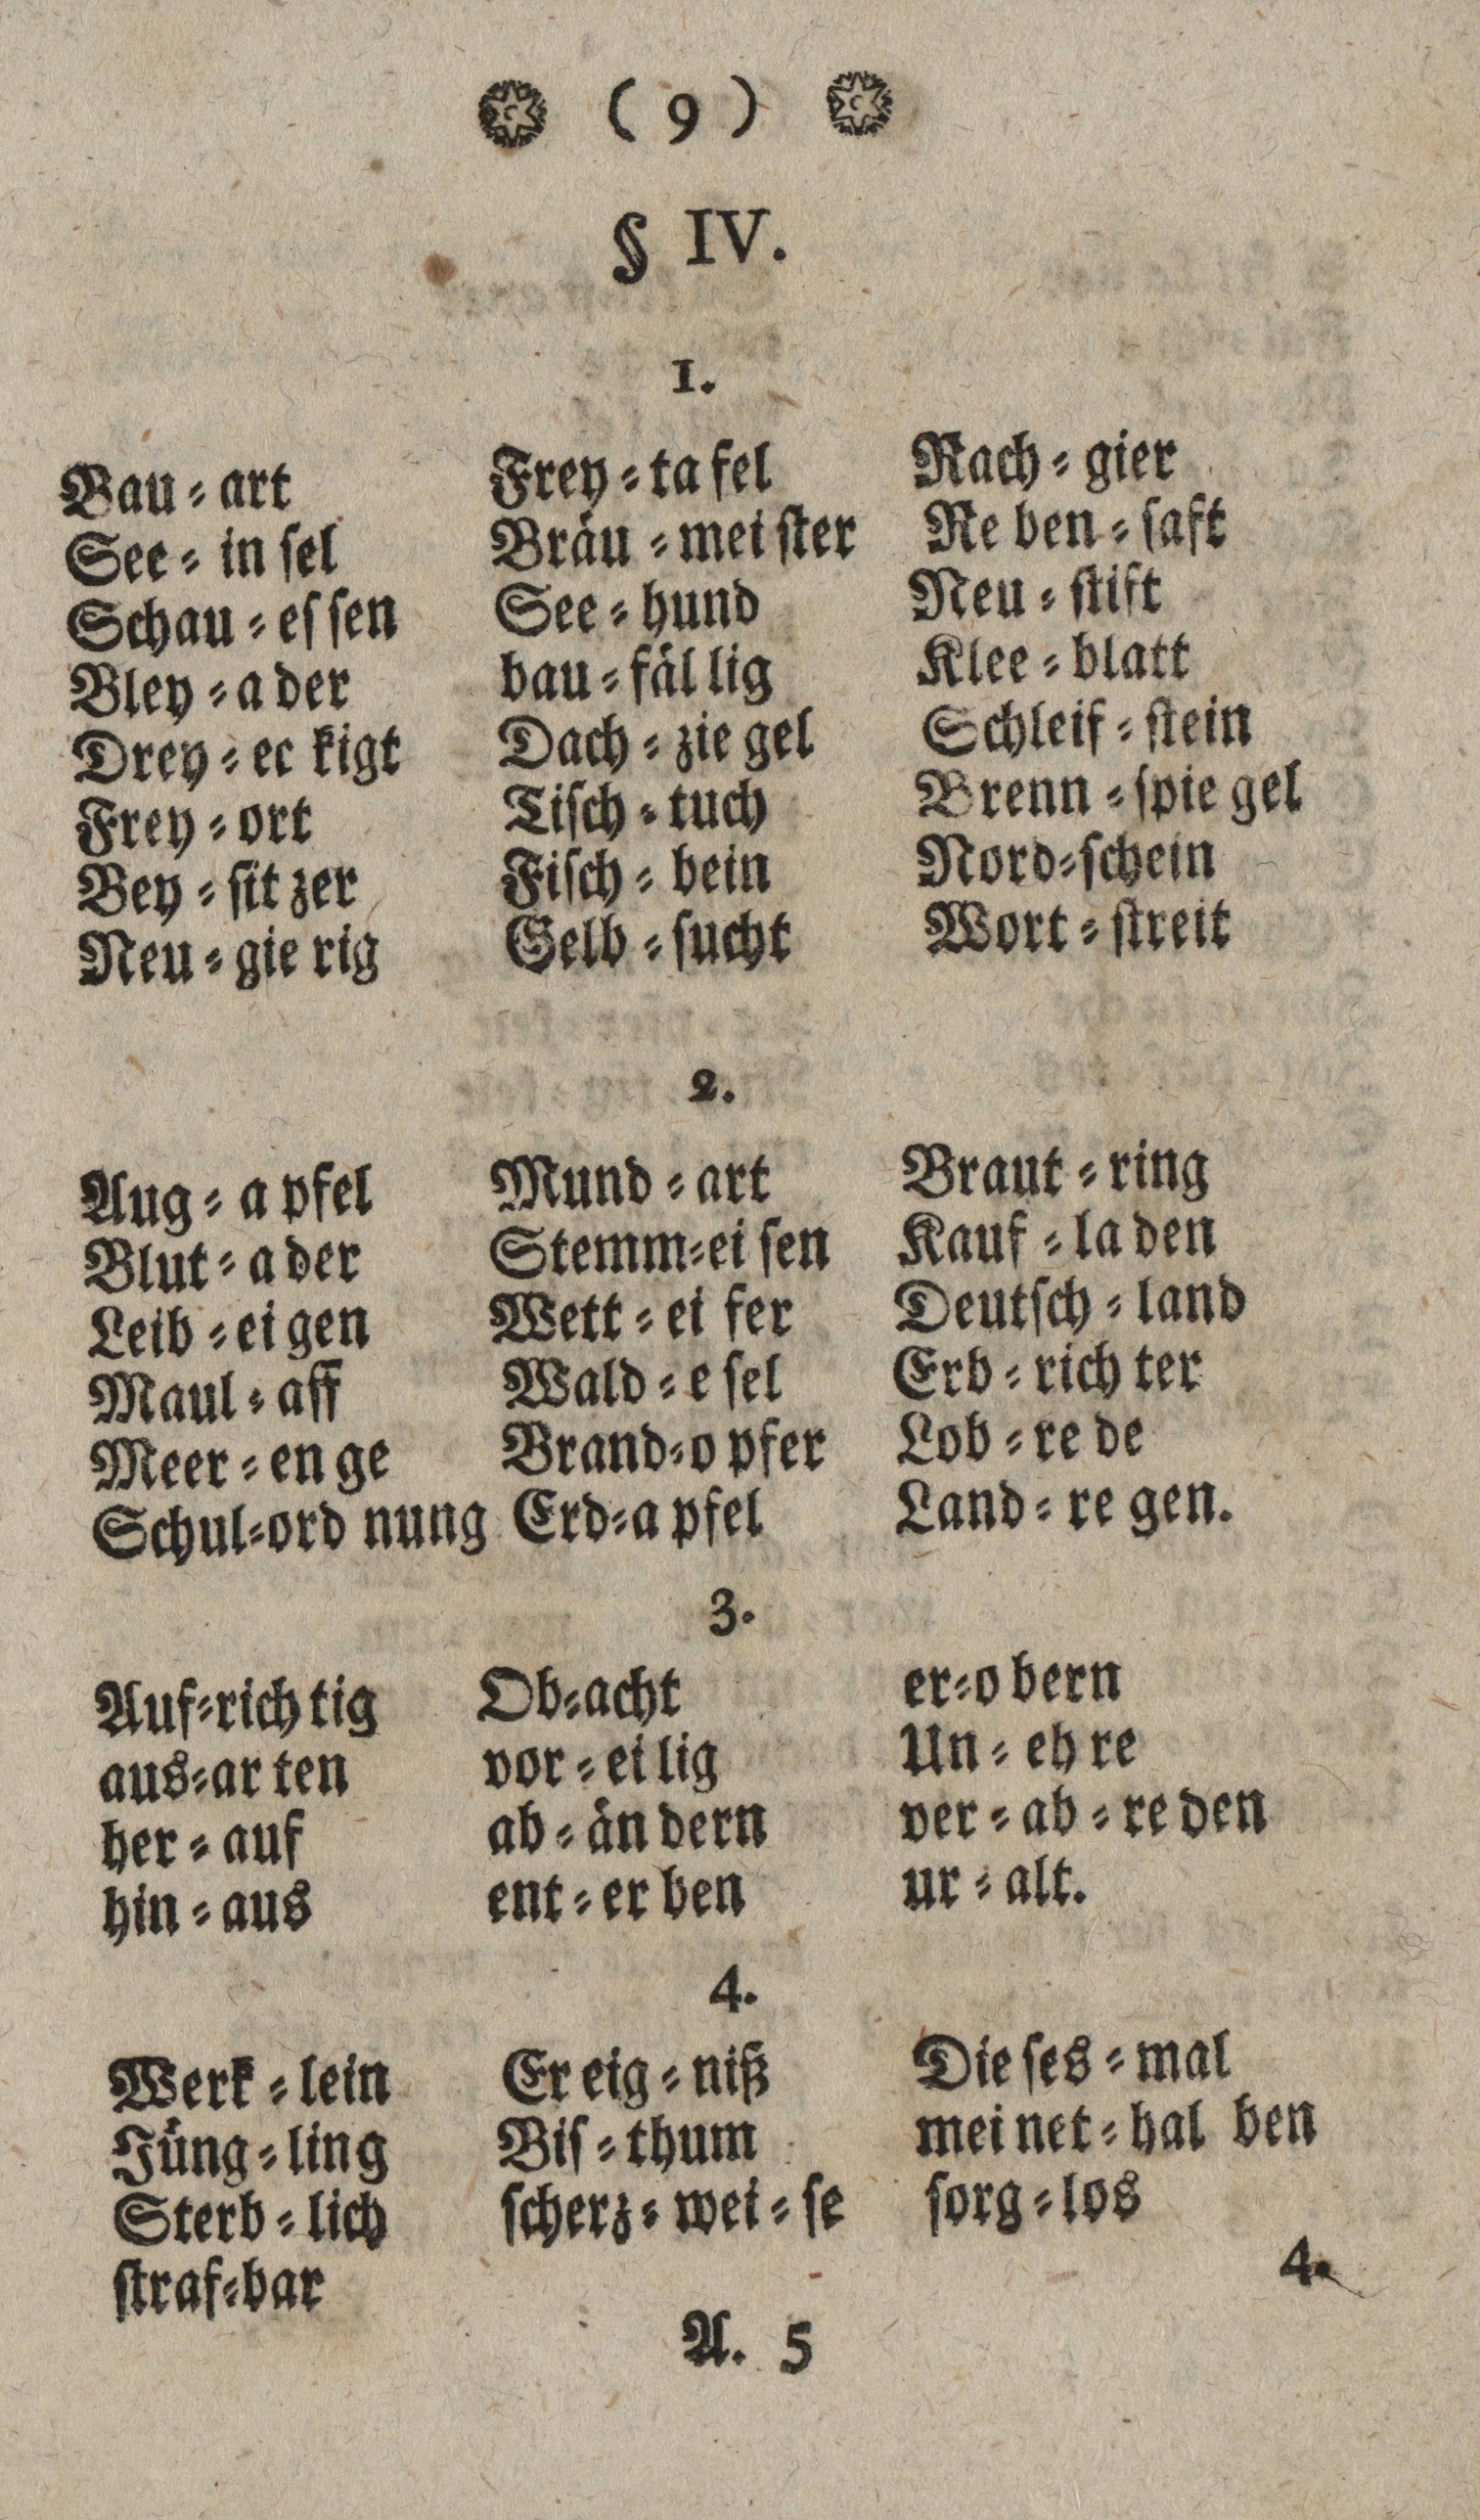 ( 9 )
§ IV.
1.
Bau⸗art Frey⸗ta fel Rach⸗gier
See⸗in ſel Bräu⸗mei ſter Re ben⸗ſaft
Schau⸗eſ ſen See⸗hund Neu⸗ſtift
Bley⸗a der bau⸗fäl lig Klee⸗blatt
Drey⸗ec kigt Dach⸗zie gel Schleif⸗ſtein
Frey⸗ort Tiſch⸗tuch Brenn⸗ſpie gel
Bey⸗ſit zer Fiſch⸗bein Nord⸗ſchein
Neu⸗gie rig Gelb⸗ſucht Wort⸗ſtreit
2.
Aug⸗a pfel Mund⸗art Braut⸗ring
Blut⸗a der Stemm⸗ei ſen Kauf⸗la den
Leib⸗ei gen Wett⸗ei fer Deutſch⸗land
Maul⸗aff Wald⸗e ſel Erb⸗rich ter
Meer⸗en ge Brand⸗o pfer Lob⸗re de
Schul⸗ord nung Erd⸗a pfel Land⸗re gen.
3.
Auf⸗rich tig Ob⸗acht er⸗o bern
aus⸗ar ten vor⸗ei lig Un⸗eh re
her⸗auf ab⸗än dern ver⸗ab⸗re den
hin⸗aus ent⸗er ben ur⸗alt.
4.
Werk⸗lein Er eig⸗niß Die ſes⸗mal
Jüng⸗ling Biſ⸗thum mei net⸗hal ben
Sterb⸗lich ſcherz⸗wei⸗ſe ſorg⸗los
ſtraf⸗bar
4.
A. 5